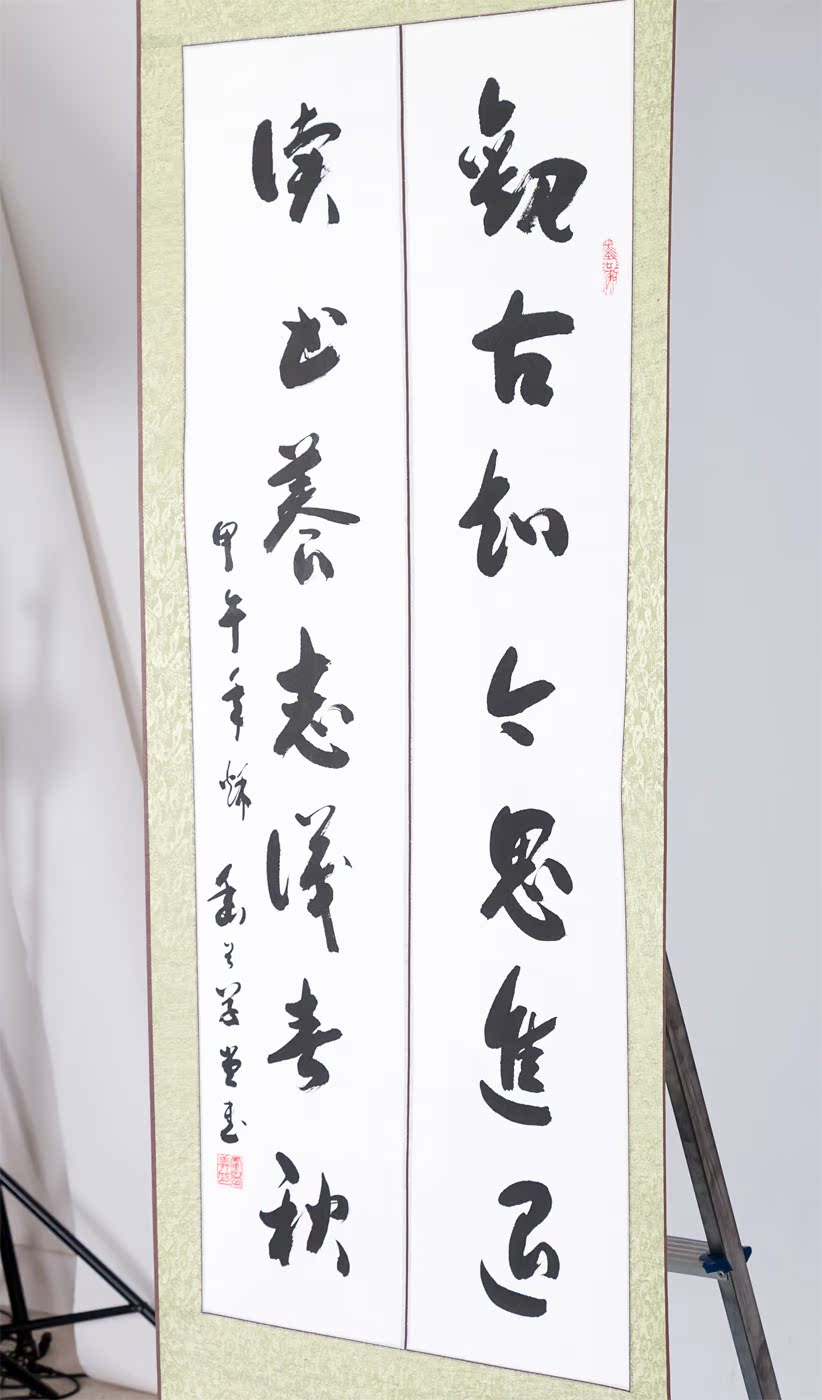 觀古知今思進退
讀書養志識春秋
甲午年秋
草堂